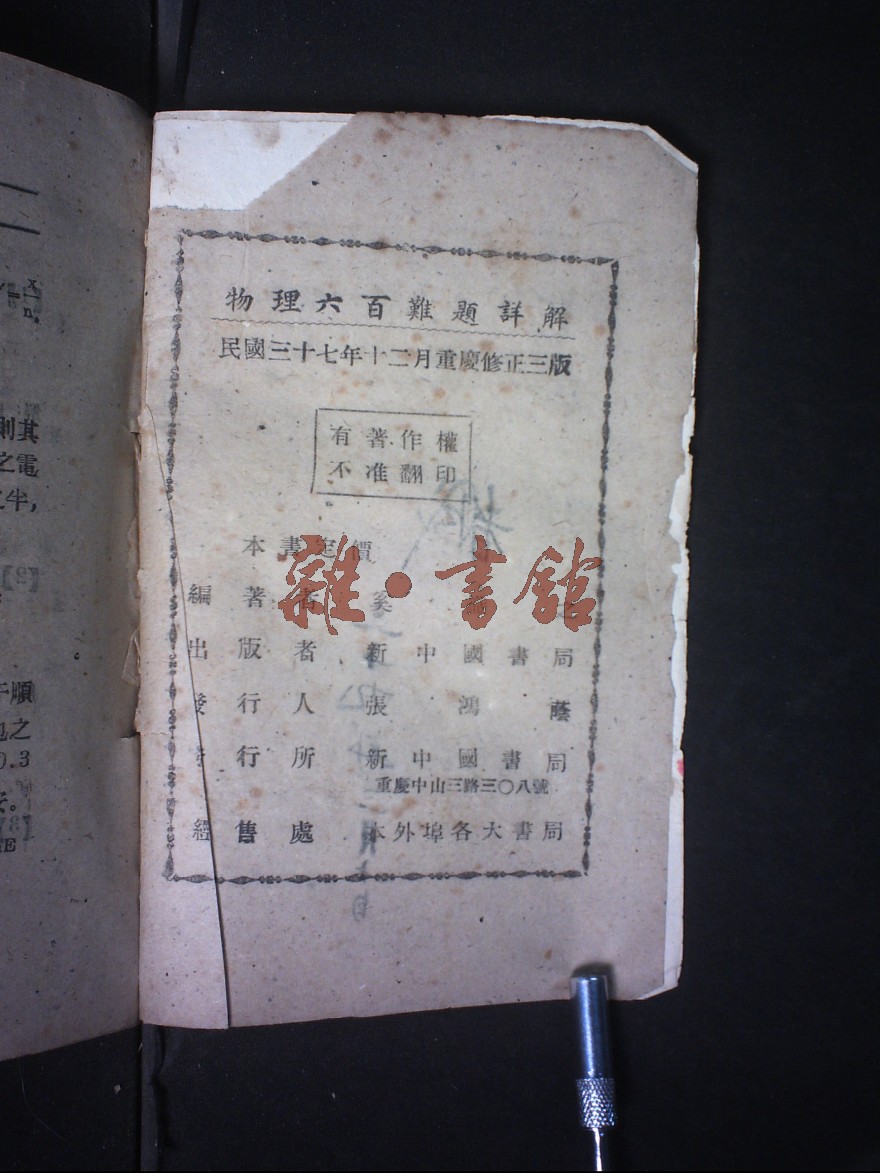 物理六百難題詳解
民國三十七年十二月重慶修正三版
有著作權
不准翻印
本書定價
編著者 奚
出版者 新中國書局
發行人 張鴻蔭
發行所 新中國書局
重慶中山三路三〇八號
經售處 本外埠各大書局
雜·書館
x
n
則其
之電
半,
順
之
0.3